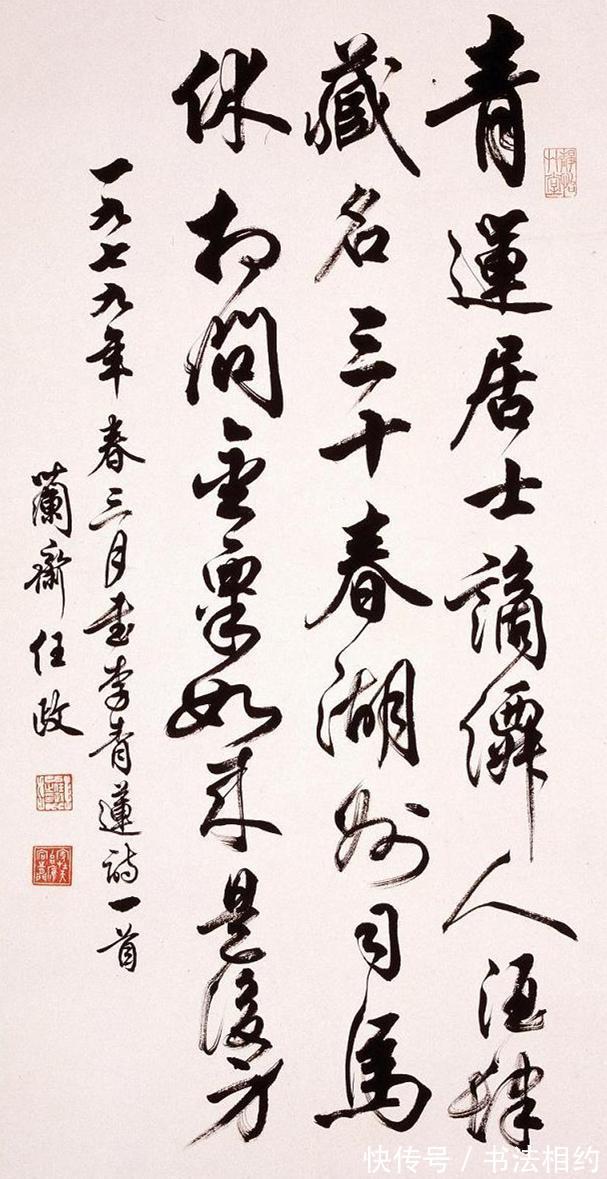 青蓮居士謫僊人酒肆
藏名三十春湖州司馬
休相問金粟如來是後身
一九七九年春三月書李青蓮詩一首
蘭齋任政
快传号 / 书法相约